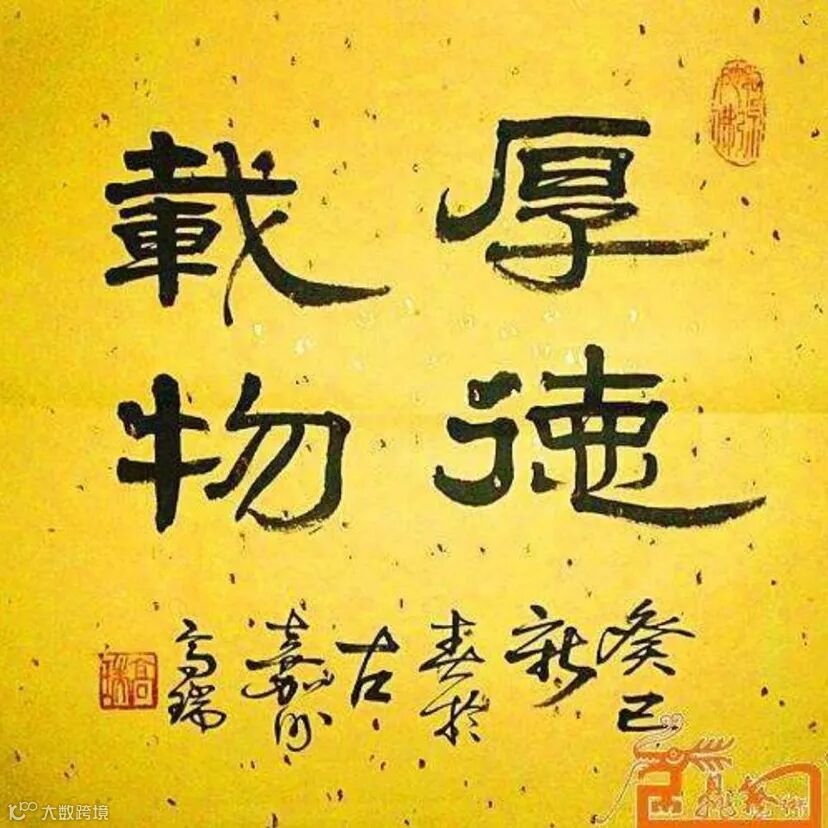 厚德
載物
癸巳
新
春於
古
嘉州
高瑞
大数跨境